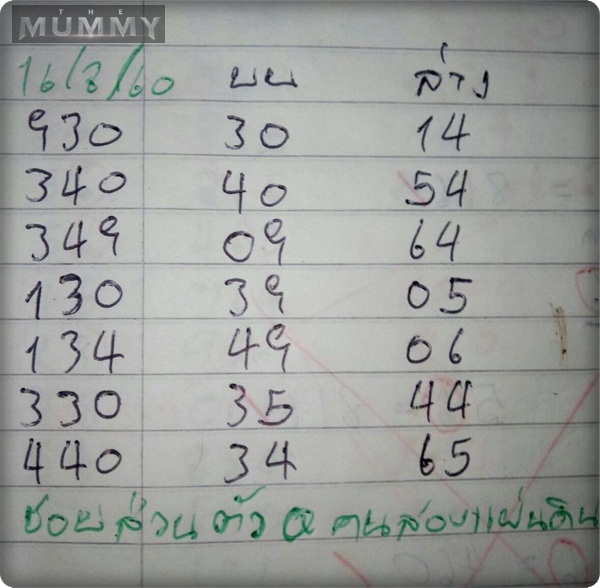 THE
MUMMY
16/8/60 บน ล่าง
930 30 14
340 40 54
349 09 64
130 39 05
134 49 06
330 35 44
440 34 65
ชอบส่วนตัว @ คนสองแผ่นดิน